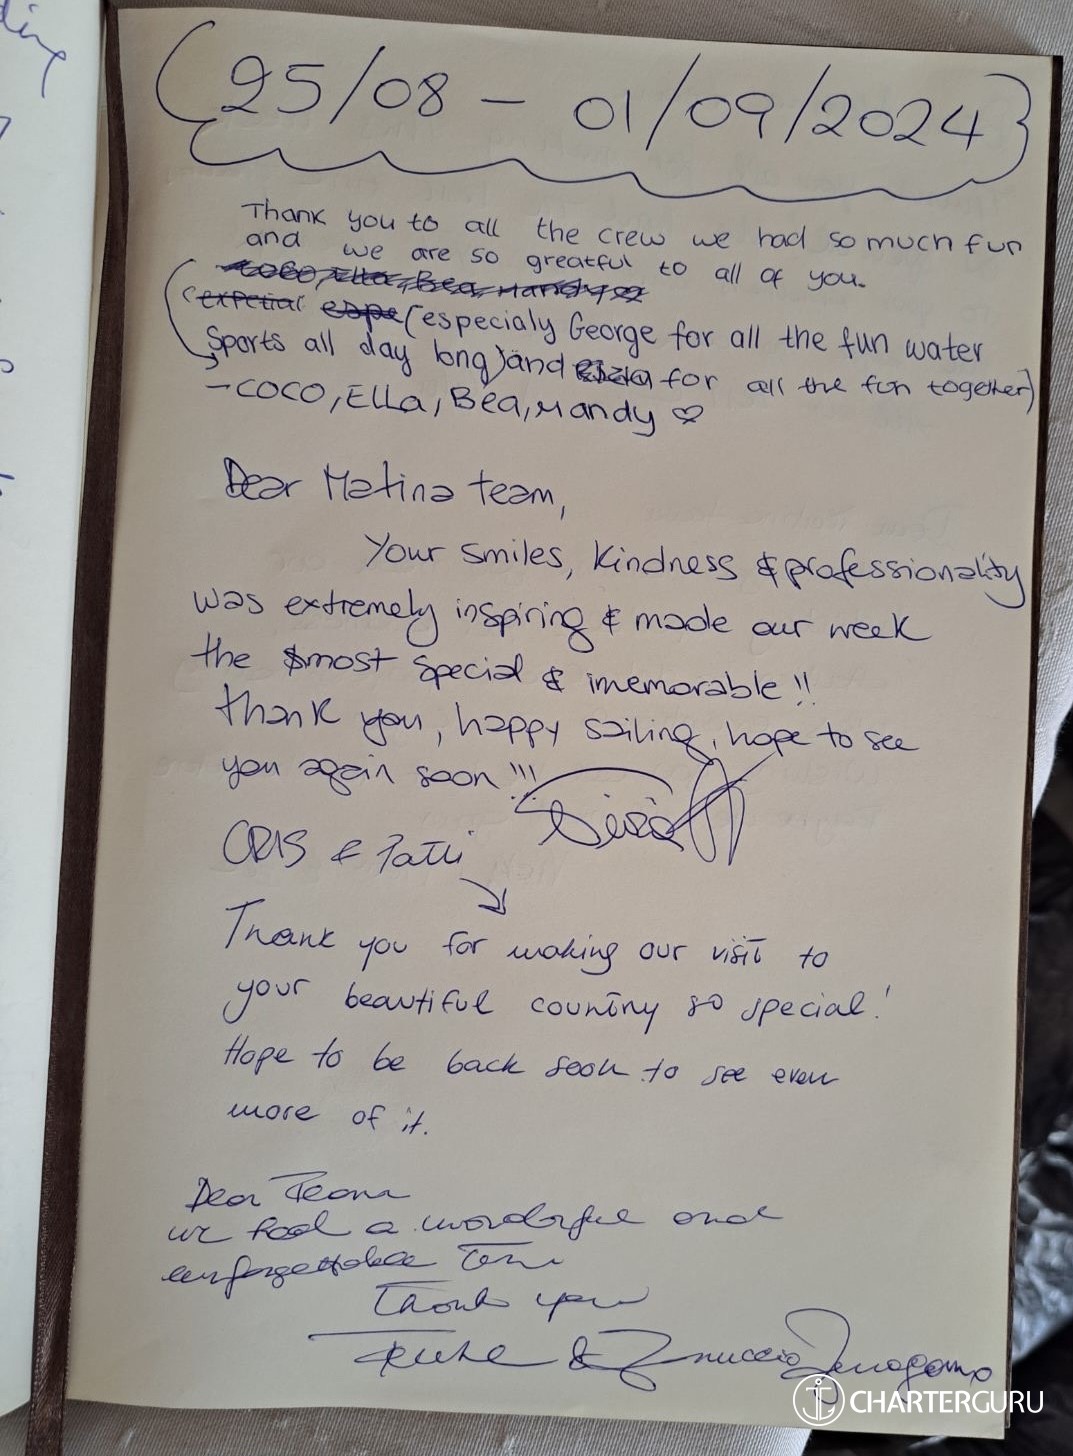 ding
25/08 - 01/09/2024
Thank you to all the crew we had so much fun
and we are so greatful to all of you.
Coco, Ella, Bea, Mandy
(expetial espe (especialy George for all the fun water
Sports all day long) and for all the fun together)
- COCO, ELLa, Bea, Mandy ♡
Dear Matina team,
Your smiles, kindness & professionality
was extremely inspiring & made our week
the most special & memorable!!
thank you, happy sailing, hope to see
you again soon!!!
CRIS & Patti
Thank you for making our visit to
your beautiful country so special!
Hope to be back soon to see even
more of it.
Dear Team
we had a wonderful and
unforgettable
Thank you
&
CHARTERGURU